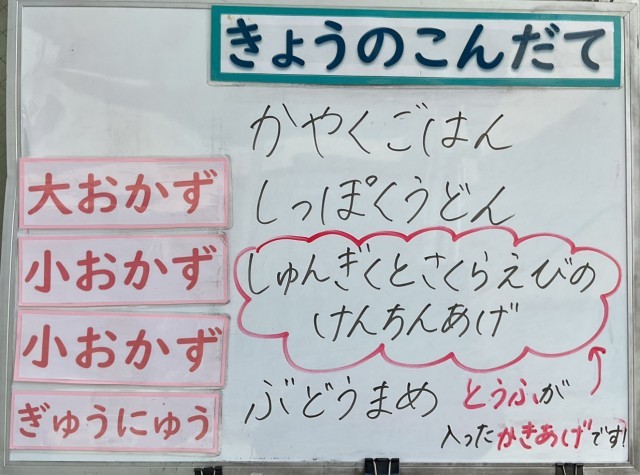 きょうのこんだて
かやくごはん
大おかず しっぽくうどん
小おかず しゅんぎくとさくらえびの
けんちんあげ
小おかず
ぶどうまめ とうふが
ぎゅうにゅう 入ったかきあげです!